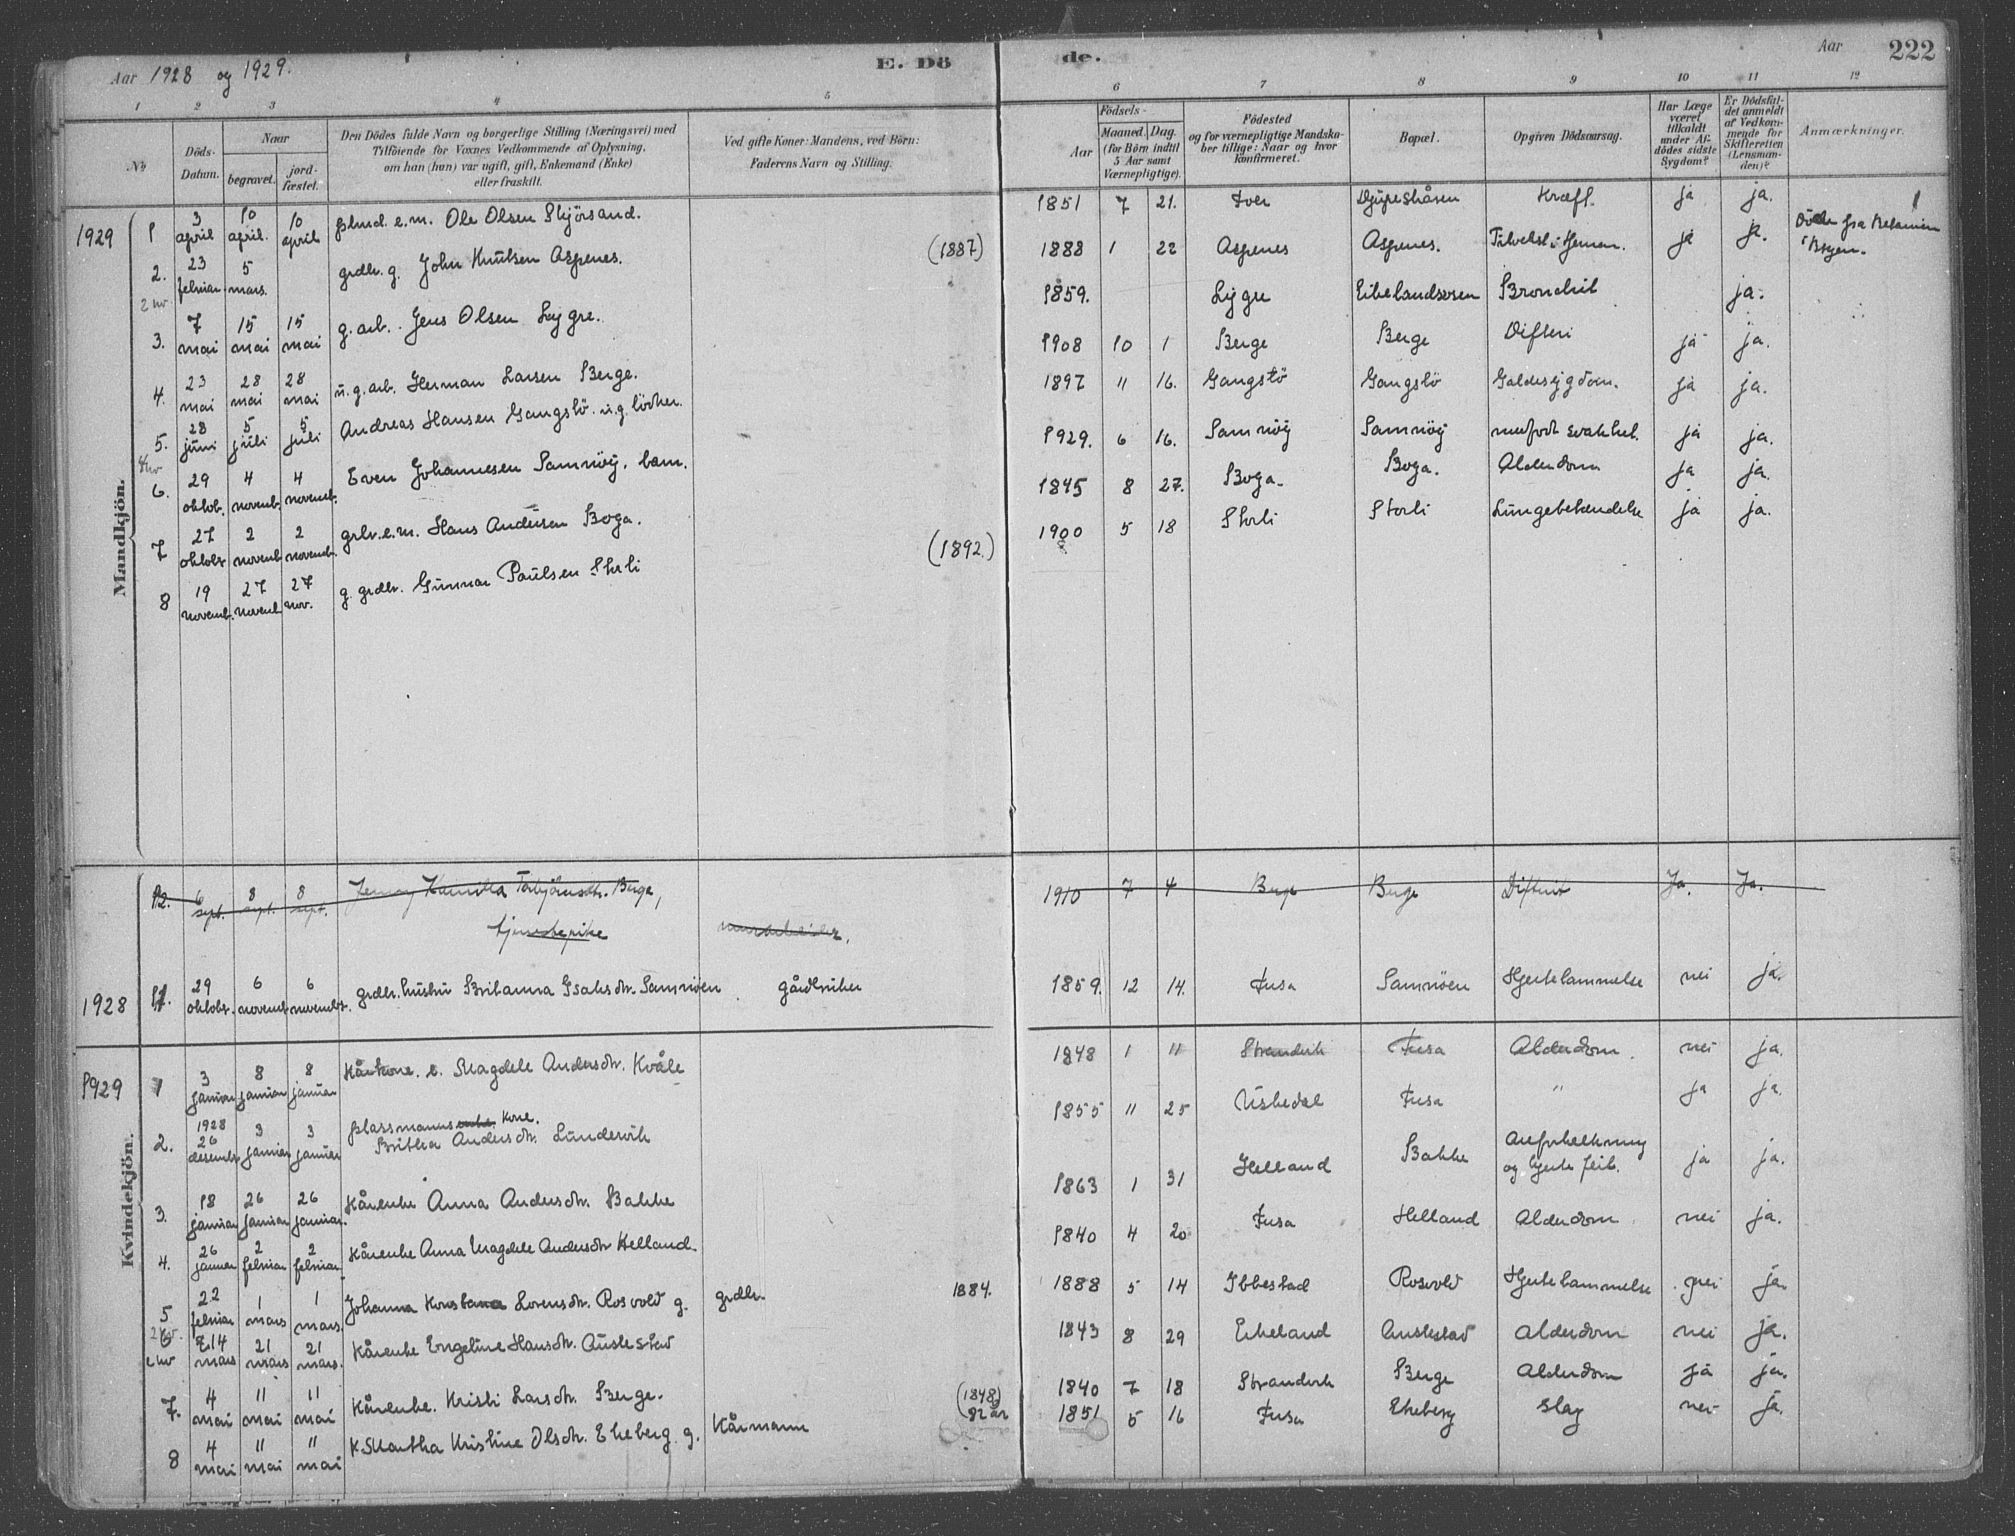 Aar 1928 og 1929.
E. Dö
de.
Aar
222
1 2 3 4 5
6 7 8 9 10 11 12
No
Döds-Datum.
Naar
begravet.
jord-fæstet.
Den Dödes fulde Navn og borgerlige Stilling (Næringsvei) med
Tilföiende for Voxnes Vedkommende af Oplysning,
om han (hun) var ugift, gift, Enkemand (Enke)
eller fraskilt.
Ved gifte Koner: Mandens, ved Börn:
Faderens Navn og Stilling.
Födsels-
Aar
Maaned. Dag.
(for Börn indtil
5 Aar samt
Værnepligtige).
Födested
og for værnepligtige Mandska-
ber tillige: Naar og hvor
konfirmeret.
Bopæl.
Opgiven Dödsaarsag.
Har Læge
været
tilkaldt
under Af-
dödes sidste
Sygdom?
Er Dödsfal-
det anmeldt
af Vedkom-
mende for
Skifteretten
(Lensman-
den)?
Anmærkninger.
Mandkjön.
1929 1 3 april 10 april. 10 april e.m. Ole Olsen Skjörsand. 1851 7 21. Kræft. ja ja. fra Betanien i Bergen.
2. 23 februar 5 mars. grdbr. g. John Knutsen Aspenes. (1887) 1888 1 22 Aspenes Aspenes. ja ja.
3. 7 mai 15 mai 15 mai g. arb. Jens Olsen Lygre. 1859. Lygre Eikelandsosen Bronchit ja.
4. 23 mai 28 mai 28 mai u.g. arb. Herman Larsen Berge. 1908 10 1 Berge Berge Difteri ja ja.
5. 28 juni 5 juli 5 juli Andreas Hansen Gangstö. u.g. 1897 11 16. Gangstö Gangstö Galdesygdom. ja ja.
6. 29 oktob. 4 novemb. 4 novemb. Even Johannesen Samnöy. barn. 1929. 6 16. Samnöy Samnöy medfødt svakhet. ja ja.
7 27 oktobr 2 novemb 2 novemb. grbr. e.m. Hans Andersen Boga. (1892.) 1845 8 27. Boga. Boga. Alderdom ja ja.
8 19 novemb. 27 novemb. 27 nov. g. grdbr. Gunnar Paulsen Storli 1900 5 18 Storli Storli Lungebetændelse ja ja.
Kvindekjön.
12. 6 sept. 8 sept. 8 sept. Jenny Kamilla Torbjörnsdtr. Berge, 1910 7 4 Berge Berge Difterit Ja. Ja.
tjenestepike murarbeider.
1928 11. 29 oktobr. 6 novemb 6 novembr. grdbr. hustru Britanna Isaksdtr. Samnöen gårdbruker 1859. 12 14. Fusa Samnöen Hjertelammelse nei ja.
1929 1 3 januar 8 januar 8 januar Kårkone. e. Magdele Andersdtr. Kvåle 1848 1 11 Strandvik Fusa Alderdom. nei ja.
2. 1928 26 desembr 3 januar 3 januar plassmanns enke. kone.
Britha Andersdtr. Lundervik 1855 11 25 Fusa " ja ja.
3. 18 januar 26 januar 26 januar. Kårenke Anna Andersdtr. Bakke 1863 1 31 Helland Bakke og hjertefeil. ja ja.
4. 26 januar 2 februar 2 februar Kårenke Anna Magdele Andersdtr Helland. 1840 4 20 Fusa Helland Alderdom nei ja.
5 22 februar 1 mars 1 mars. Johanna Konstanse Lorensdtr. Rosvold g. grdbr. 1884. 1888 5 14 Ibbestad Rosvold Hjertelammelse nei ja.
6 14 mars 21 mars 21 mars. Kårenke Engeline Hansdtr. Austestad 1843 8 29 Eikeland Austestad Alderdom nei ja.
7. 4 mai 11 mai 11 mai Kårenke. Kristi Larsdtr. Berge. (1848) 1840 7 18 Strandvik Berge Alderdom ja ja.
8 4 mai 11 mai 11 mai K. Martha Kristine Olsdtr. Ekeberg g. Kårmann 82 år 1851 5 16 Fusa Ekeberg Slag nei ja.